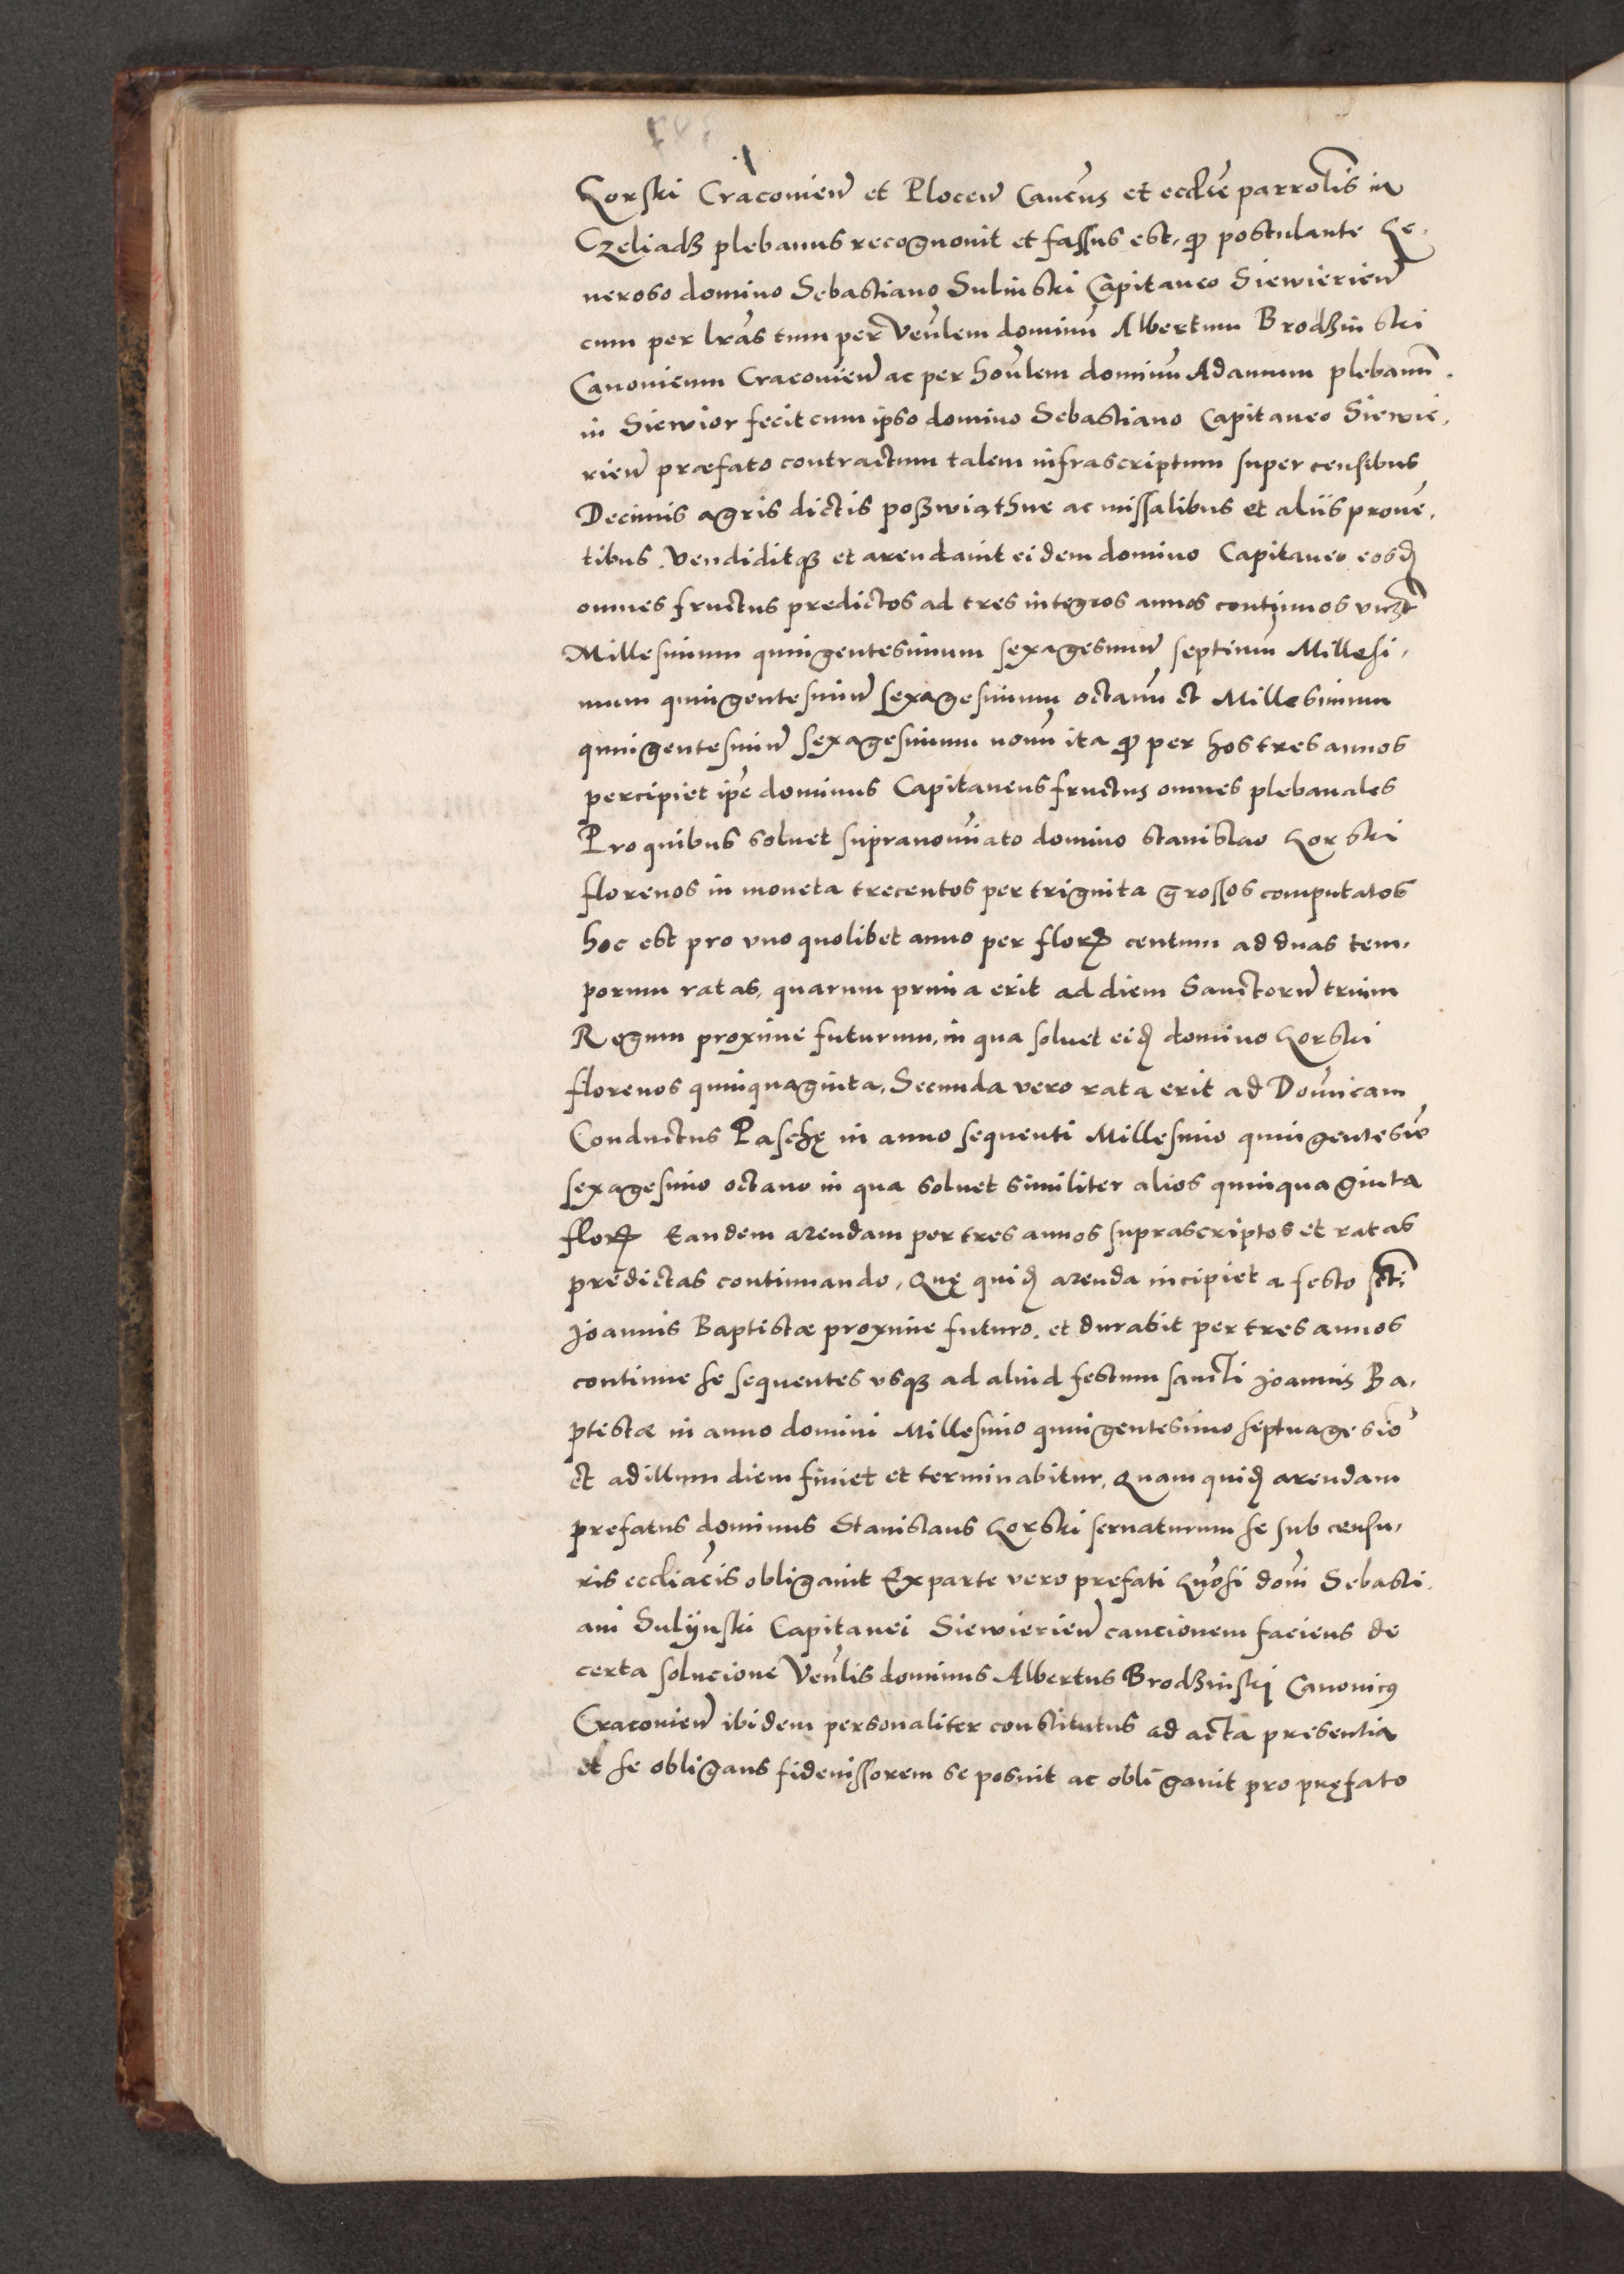 Gorski Cracovien̄ et Plocen̄ Can̄cus et eccl̄ie parrol̄is in
Czeliadz plebanus recognovit et fassus est, qꝫ postulante Ge,
neroso domino Sebastiano Sulinski Capitaneo Siewierien̄
cum per lr̄as tum per Ven̄lem dominū Albertum Brodzinski
Canonicum Cracovien̄ ac per hon̄lem dominū Adamum plebanū
in Siewior fecit cum ipso domino Sebastiano Capitaneo Siewie,
rien̄ præfato contractum talem infrascriptum super censibus
Decimis agris dictis poszwiąthne ac missalibus et aliis proven̄,
tibus. Vendiditqꝫ et arendavit eidem domino Capitaneo eosđ
omnes fructus predictos ad tres integros annos continuos vidꝫt
Millesimum quingentesimum sexagesimum septimū Millesi,
mum quingentesimū sexagesimum octavū et Millesimum
quingentesimū sexagesimum nonū ita qꝫ per hos tres annos
percipiet ip̄e dominus Capitaneus fructus omnes plebanales
Pro quibus solvet supranoīato domino Stanislao Gorski
florenos in moneta trecentos per triginta grossos computatos
hoc est pro uno quolibet anno per florꝫ centum ad duas tem,
porum ratas, quarum prima erit ad diem Sanctorū trium
Regum proxime futurum, in qua solvet eiđ domino Gorski
florenos quinquaginta, Secunda vero rata erit ad Dom̄icam
Conductus Paschę in anno sequenti Millesimo quingentesīo
sexagesimo octavo in qua solvet similiter alios quinquaginta
florꝫ Eandem arendam per tres annos suprascriptos et ratas
predictas continuando, Quę quiđ arenda incipiet a festo sc̄ti
Joannis Baptistæ proxime futuro, et durabit per tres annos
continue se sequentes usqꝫ ad aliud festum sancti Joannis Ba,
ptistæ in anno domini Millesimo quingentesimo septuagesīo
et ad illum diem finiet et terminabitur, Quam quiđ arendam
prefatus dominus Stanislaus Gorski servaturum se sub censu,
ris eccl̄iacis obligavit Ex parte vero prefati Gn̄osi dom̄i Sebasti,
ani Sulijnski Capitanei Siewierien̄ caucionem faciens de
certa solucione Ven̄lis dominus Albertus Brodzinski Canonicꝰ
Cracovien̄ ibidem personaliter constitutus ad acta presentia
et se obligans fideiussorem se posuit ac obligavit pro pręfato